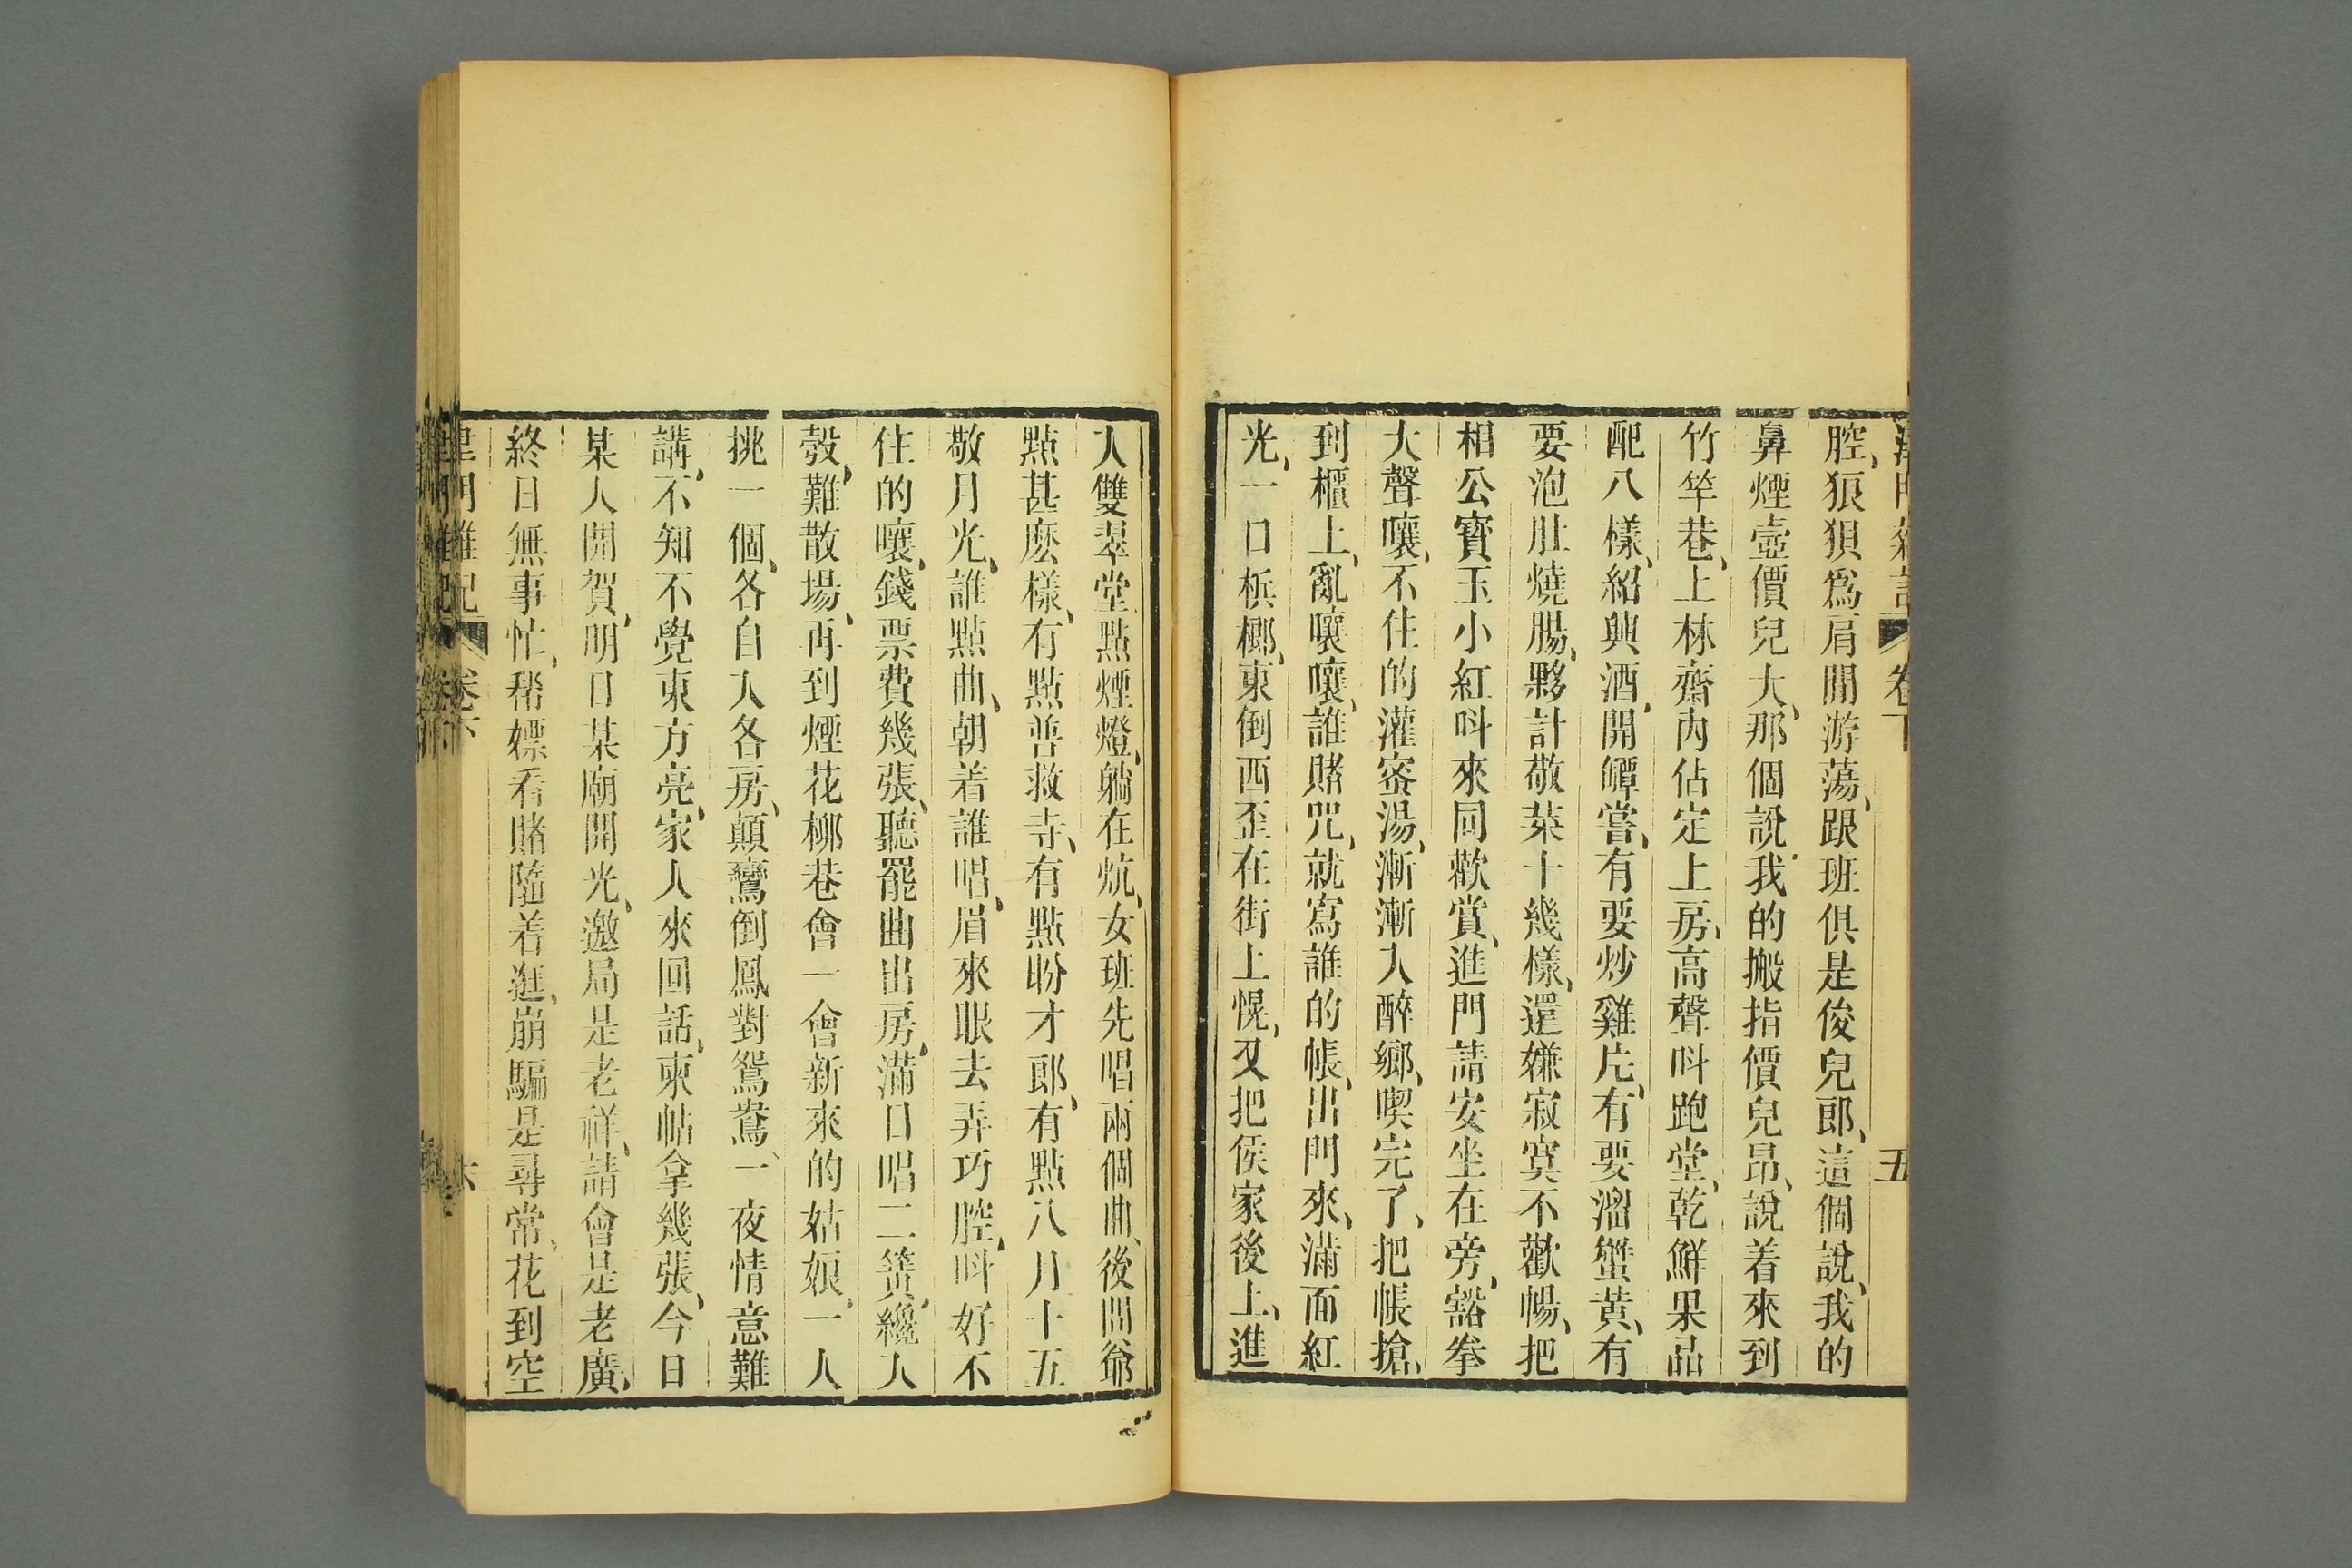 津門雜記 卷下 五
腔、狼狽爲肩閒游蕩、跟班俱是俊兒郎、這個說、我的
鼻煙壺價兒大、那個說、我的搬指價兒昂、說着來到
竹竿巷、上林齋內佔定上房、高聲呌跑堂、乾鮮果品
配八樣、紹興酒、開罈嘗、有要炒雞片、有要溜蟹黄、有
要泡肚燒腸、夥計敬菜十幾樣、還嫌寂寞不歡暢、把
相公寶玉小紅呌來同歡賞、進門請安坐在旁、豁拳
大聲嚷、不住的灌蜜湯、漸漸入醉鄉、喫完了、把帳搶、
到櫃上、亂嚷嚷、誰賭咒、就寫誰的帳、出門來、滿面紅
光、一口梹榔、東倒西歪在街上愰、又把侯家後上、進
大雙翠堂、點煙燈、躺在炕、女班先唱兩個曲、後問爺
點甚麽樣、有點普救寺、有點盼才郎、有點八月十五
敬月光、誰點曲、朝着誰唱、眉來眼去弄巧腔、呌好不
住的嚷、錢票費幾張、聽罷曲出房、滿口唱二簧、纔入
彀、難散場、再到煙花柳巷會一會新來的姑娘、一人
挑一個、各自入各房、顛鸞倒鳳對鴛鴦、一夜情意難
講、不知不覺東方亮、家人來回話、柬帖拿幾張、今日
某人開賀、明日某廟開光、邀局是老祥、請會是老廣、
終日無事忙、幫嫖看賭隨着逛、崩騙是尋常、花到空
津門雜記 卷下 六